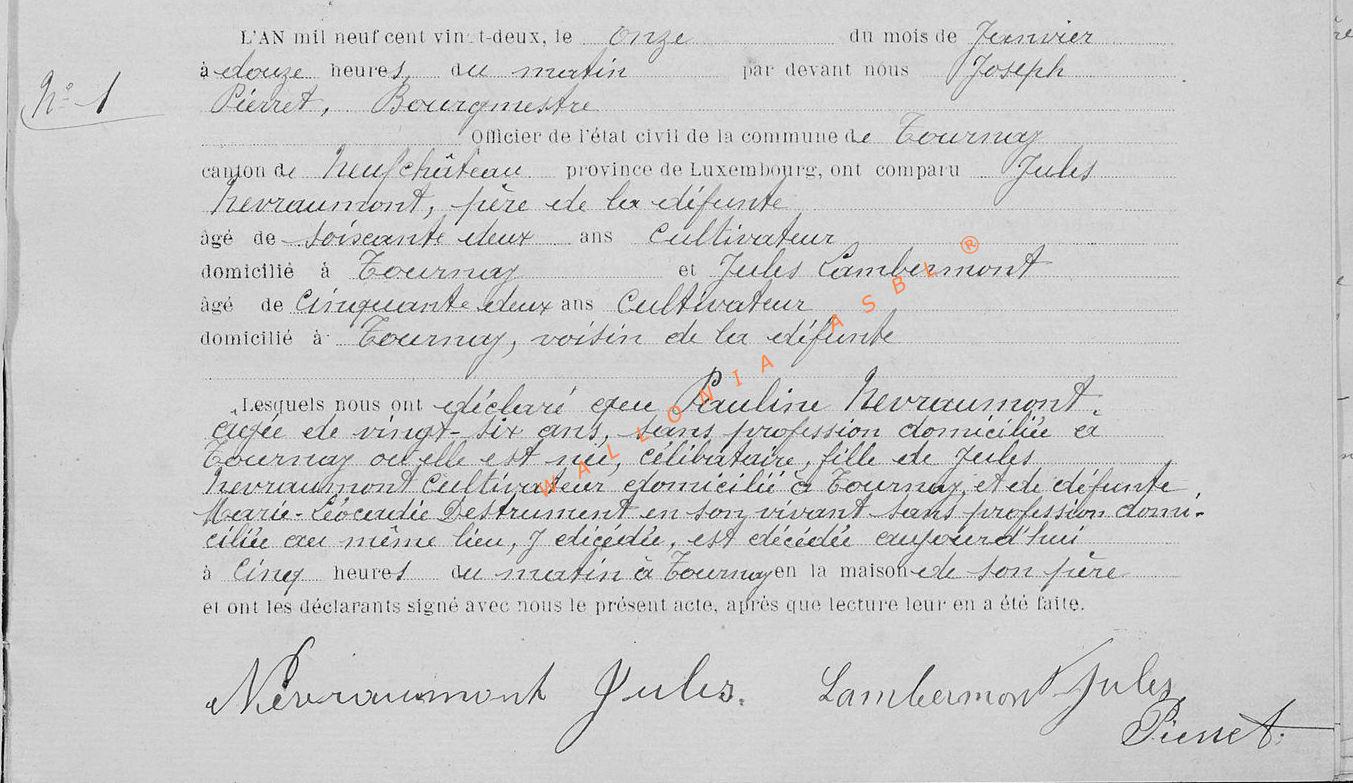 L'AN mil neuf cent vingt-deux, le onze du mois de Janvier
N° 1
à douze heures du matin par devant nous Joseph
Pierret, Bourgmestre
Officier de l'état civil de la commune de Tournay
canton de Neufchâteau province de Luxembourg, ont comparu Jules
Nevraumont, père de la défunte
âgé de soixante deux ans Cultivateur
domicilié à Tournay et Jules Lambermont
âgé de Cinquante deux ans Cultivateur
domicilié à Tournay, voisin de la défunte
Lesquels nous ont déclaré que Pauline Nevraumont,
âgée de vingt-six ans, sans profession domiciliée à
Tournay où elle est née, célibataire, fille de Jules
Nevraumont Cultivateur domicilié à Tournay, et de défunte
Marie-Léocadie Destrument en son vivant sans profession domi-
ciliée au même lieu, y décédée, est décédée aujourd'hui
à Cinq heures du matin à Tournay en la maison de son père
et ont les déclarants signé avec nous le présent acte, après que lecture leur en a été faite.
Névraumont Jules. Lambermont Jules
Pierret.
WALLONIA ASBL ®